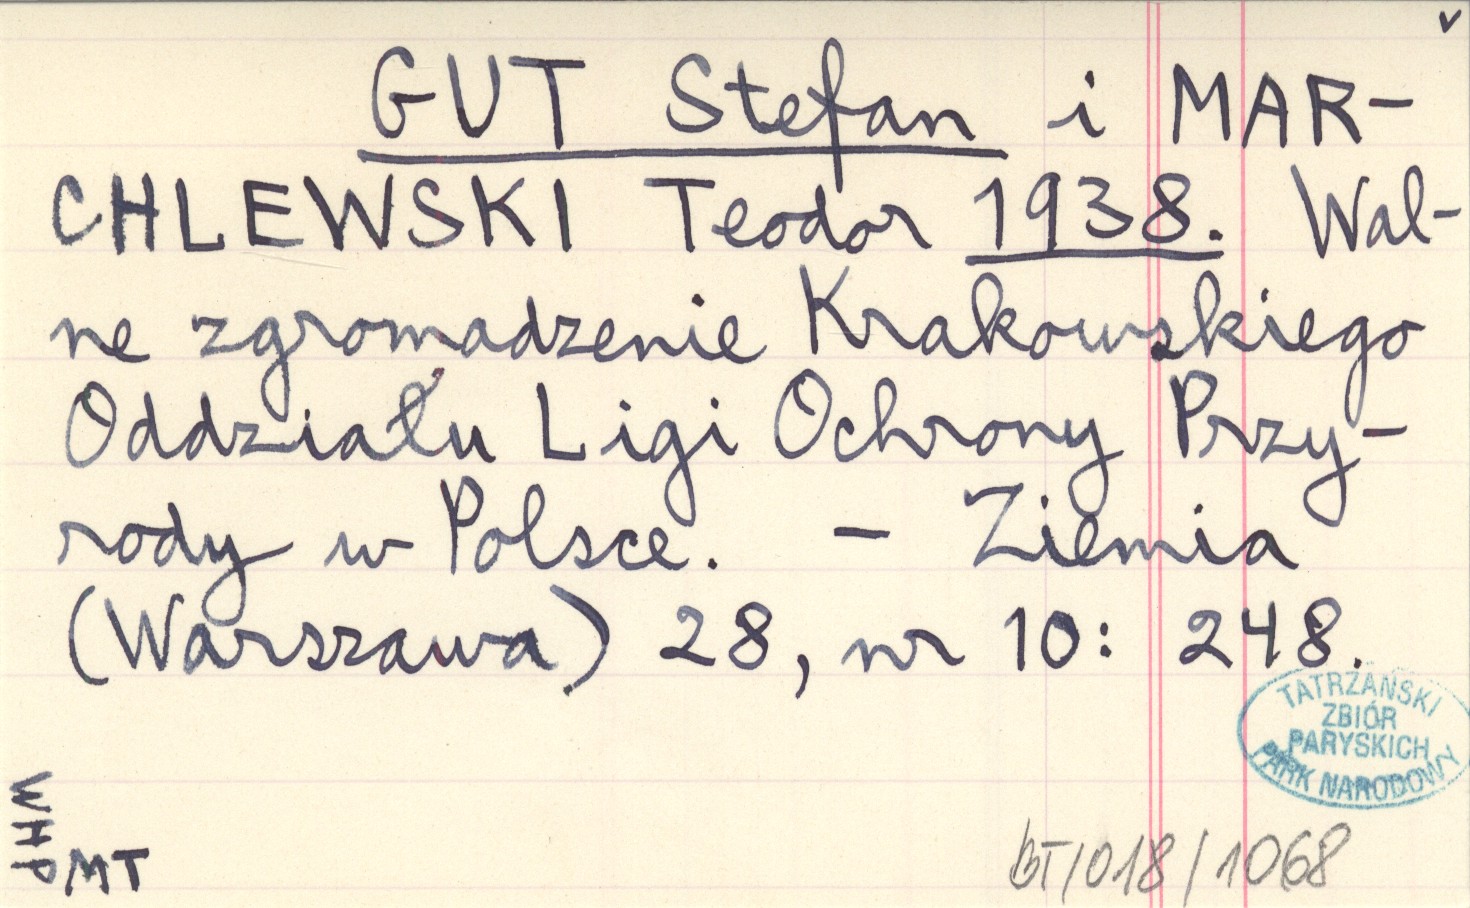 v
GUT Stefan i MAR-
CHLEWSKI Teodor 1938. Wal-
ne zgromadzenie Krakowskiego
Oddziału Ligi Ochrony Przy-
rody w Polsce. - Ziemia
(Warszawa) 28, nr 10: 248.
TATRZAŃSKI
ZBIÓR
PARYSKICH
PARK NARODOWY
WHP
MT
BT/018/1068